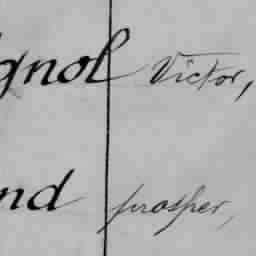 gnol Victor,
nd prosper,